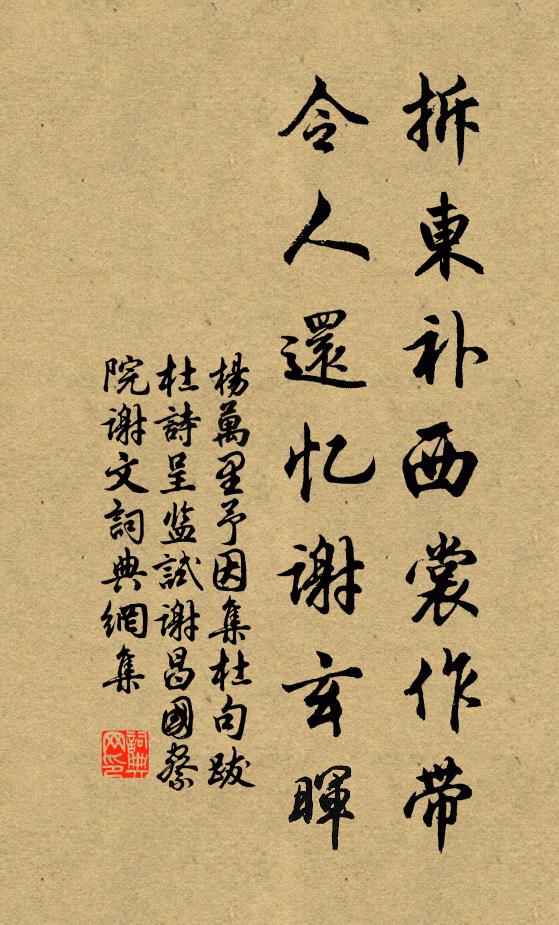 拆東补西裳作带
令人還忆谢玄暉
楊萬里予因集杜句跋
杜詩呈监試谢昌國察
院谢文詞典網集
詞典
网印